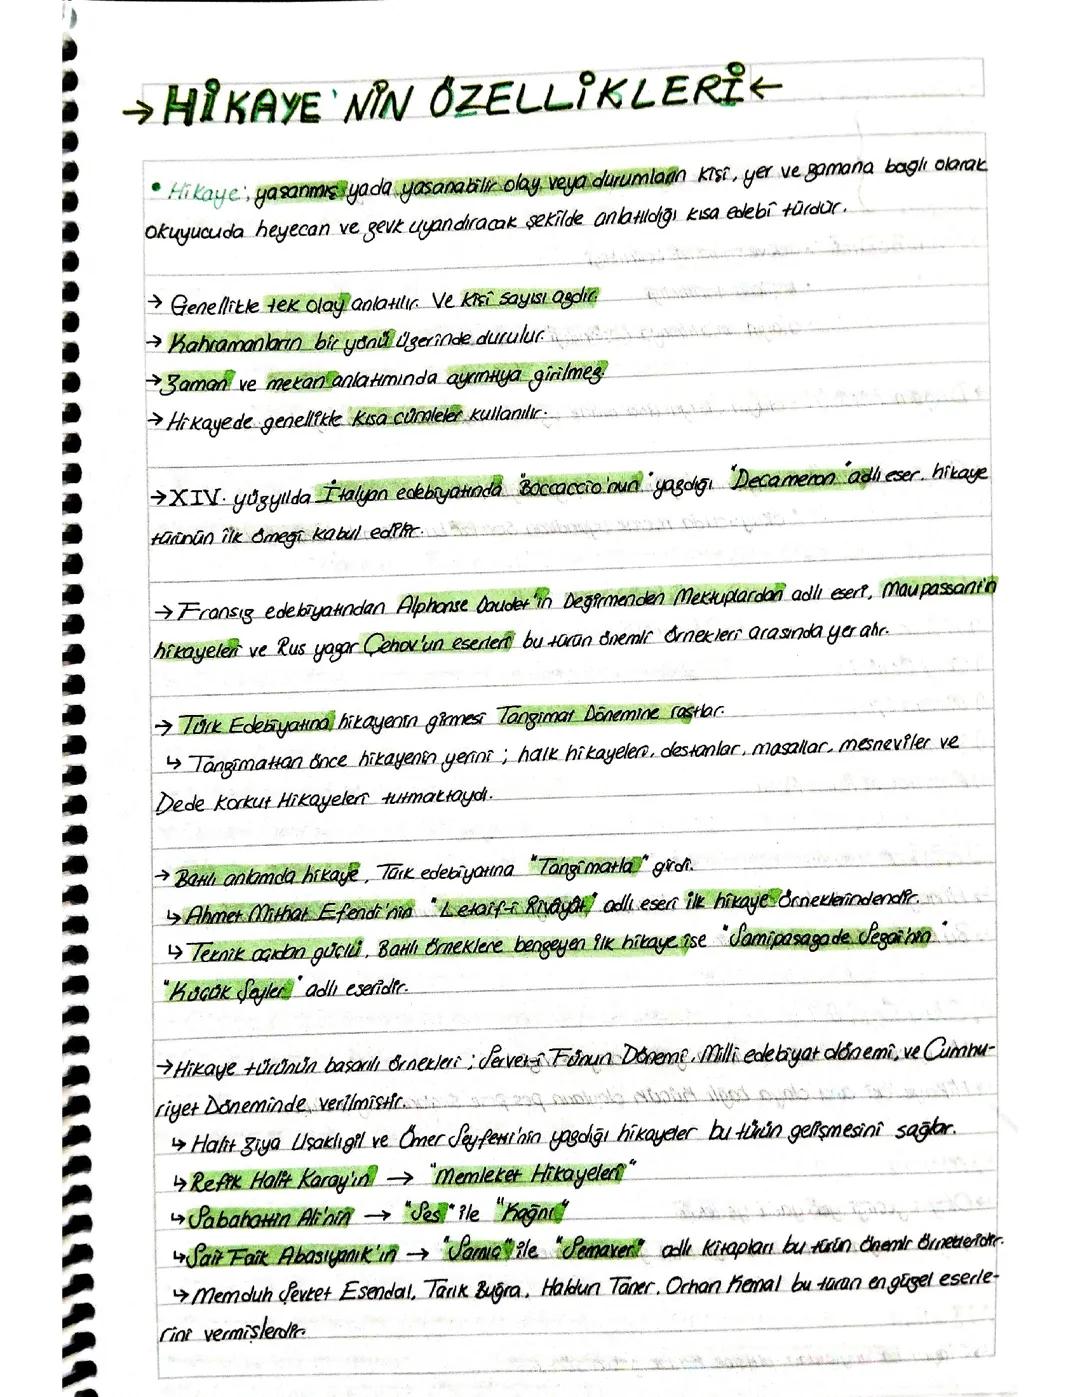 →HİKAYE'NİN ÖZELLİKLERİ←
• Hikaye; yaşanmış yada yaşanabilir olay veya durumların kişi, yer ve zamana bağlı olarak
okuyucuda heyecan ve zevk uyandıracak şekilde anlatıldığı kısa edebi türdür.
→ Genellikle tek olay anlatılır. Ve kişi sayısı azdır.
→ Kahramanların bir yönü üzerinde durulur.
→ Zaman ve mekan anlatımında ayrıntıya girilmez.
→ Hikayede genellikle kısa cümleler kullanılır.
→ XIV. yüzyılda İtalyan edebiyatında "Boccaccio'nun" yazdığı "Decameron" adlı eser, hikaye
türünün ilk örneği kabul edilir.
→ Fransız edebiyatından Alphonse Daudet'in Değirmenden Mektuplardan adlı eseri, Maupassant'ın
hikayeleri ve Rus yazar Çehov'un eserleri bu türün önemli örnekleri arasında yer alır.
→ Türk Edebiyatına hikayenin girmesi Tanzimat Dönemine rastlar.
↳ Tanzimattan önce hikayenin yerini ; halk hikayeleri, destanlar, masallar, mesneviler ve
Dede Korkut Hikayeleri tutmaktaydı.
→ Batılı anlamda hikaye, Türk edebiyatına "Tanzimatla" girdi.
↳ Ahmet Mithat Efendi'nin "Letaif-i Rivayat" adlı eseri ilk hikaye örneklerindendir.
↳ Teknik açıdan güçlü, Batılı örneklere benzeyen ilk hikaye ise "Samipaşazade Sezai'nin"
"Küçük Şeyler" adlı eseridir.
→ Hikaye türünün başarılı örnekleri ; Servet-i Fünun Dönemi, Milli edebiyat dönemi, ve Cumhu-
riyet Döneminde verilmiştir.
↳ Halit Ziya Uşaklıgil ve Ömer Seyfettin'in yazdığı hikayeler bu türün gelişmesini sağlar.
↳ Refik Halit Karay'ın → "Memleket Hikayeleri"
↳ Sabahattin Ali'nin → "Ses" ile "Kağnı"
↳ Sait Faik Abasıyanık'ın → "Sarnıç" ile "Semaver" adlı kitapları bu türün önemli örnekleridir.
↳ Memduh Şevket Esendal, Tarık Buğra, Haldun Taner, Orhan Kemal bu türün en güzel eserle-
rini vermişlerdir.